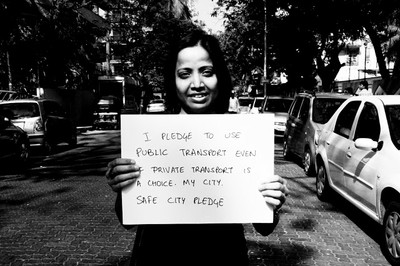 I PLEDGE TO USE
PUBLIC TRANSPORT EVEN
IF PRIVATE TRANSPORT IS
A CHOICE. MY CITY.
SAFE CITY PLEDGE